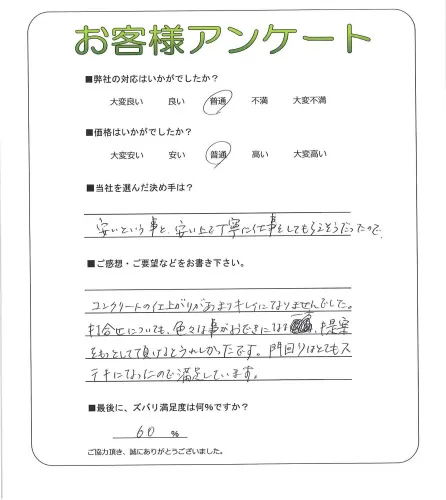 お客様アンケート
■弊社の対応はいかがでしたか?
大変良い 良い 普通 不満 大変不満
■価格はいかがでしたか?
大変安い 安い 普通 高い 大変高い
■当社を選んだ決め手は?
安いという事と、安い上で丁寧に仕事をしてもらえそうだったので、
■ご感想・ご要望などをお書き下さい。
コンクリートの仕上がりがあまりキレイになりませんでした。
打合せについても、色々な事がおできになる、提案
をもっとして頂けるとうれしかったです。門回りはとてもス
テキになったので満足しています。
■最後に、ズバリ満足度は何%ですか?
60 %
ご協力頂き、誠にありがとうございました。